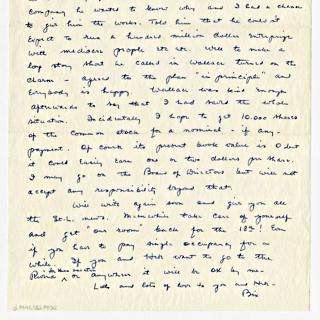 Company he wants to know why and I had a chance
to give him the works. Told him that he could not
expect to run a hundred million dollar enterprise
with mediocre people etc etc. Well to make a
long story short he called in Wallace turned on the
charm - agreed to the plan "in principle" and
Everybody is happy. Wallace was kind enough
afterwards to say that I had saved the whole
situation. Incidentally I hope to get 10,000 shares
of the common stock for a nominal - if any -
payment. Of course its present book value is 0 but
it could easily earn one or two dollars per share.
I may go on the Board of Directors but will not
accept any responsibility beyond that.
Will write again soon and give you all
the St. L. news. Meanwhile take care of yourself
and get "our room" back for the 18th! Even
if you have to pay single occupancy for a
while. If you and Heb want to go to the
or anywhere it will be OK by me -
Lots and lots of love to you and Heb -
Bix